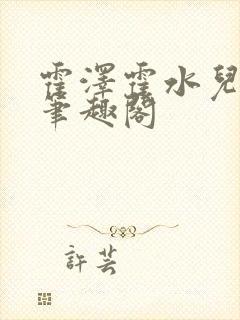 霍澤霍水兒
筆趣閣
許芸